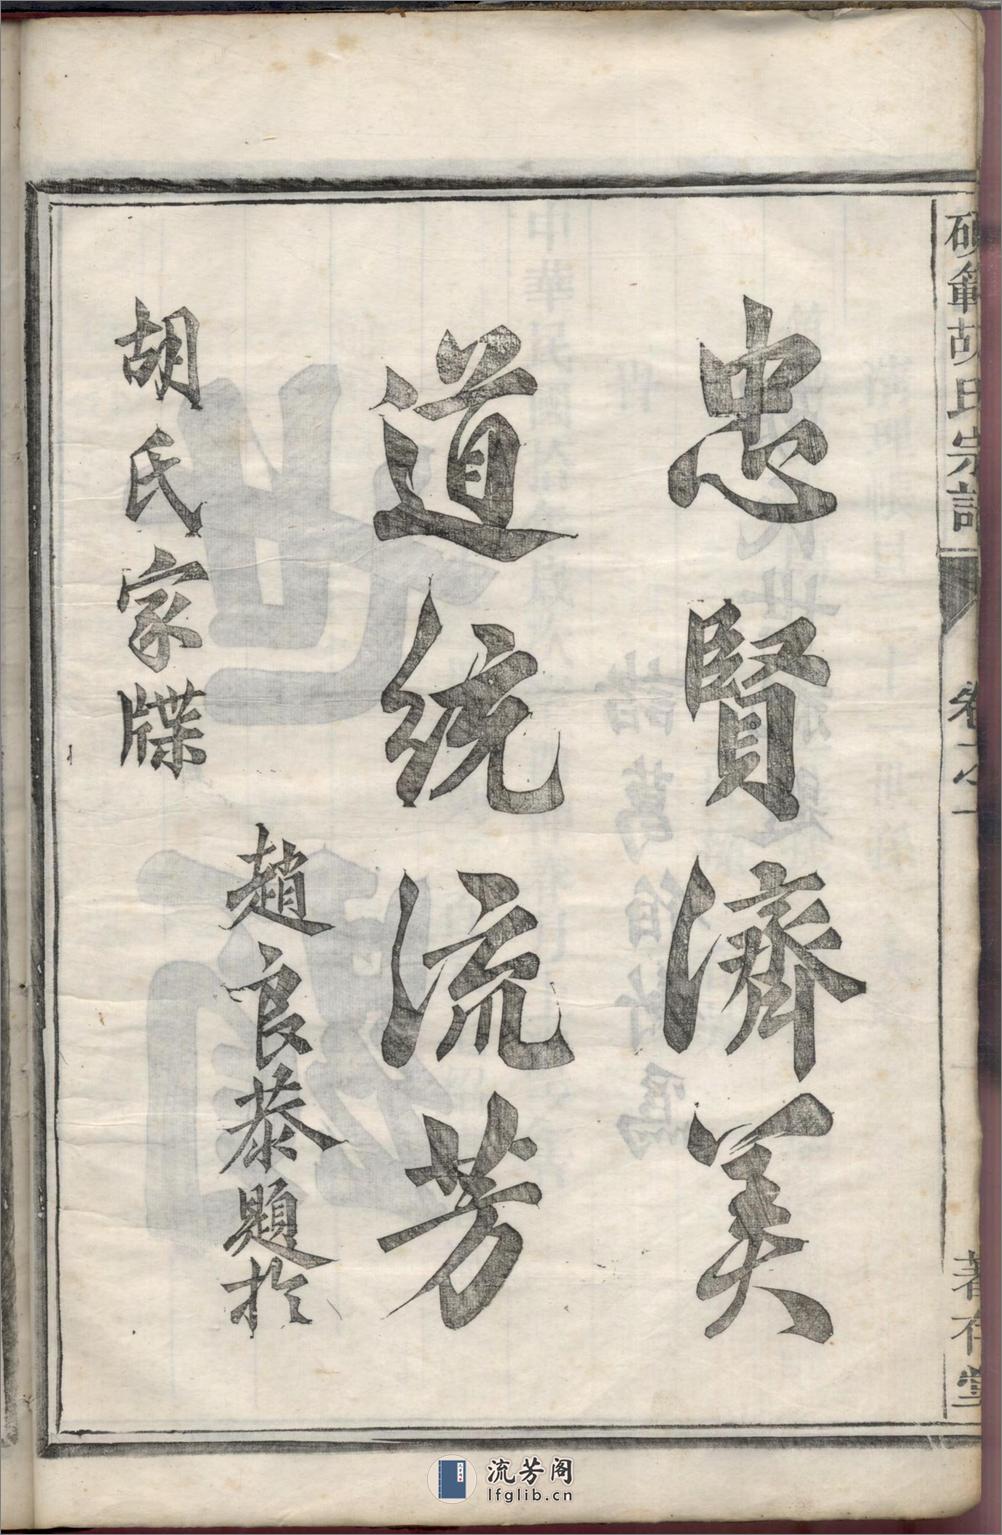 碩範胡氏宗譜
卷之一
著存堂
忠賢濟美
道統流芳
趙良恭題於
胡氏家牒
流芳阁
lfglib.cn